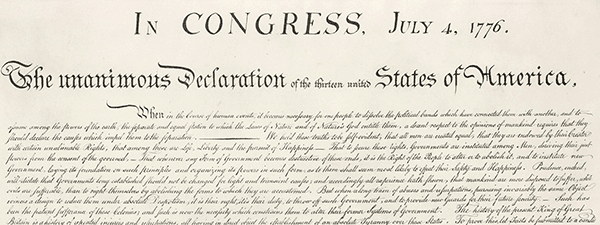 In CONGRESS, July 4, 1776.
The unanimous Declaration of the thirteen united States of America,
When in the Course of human events, it becomes necessary for one people to dissolve the political bands which have connected them with another, and to
assume among the powers of the earth, the separate and equal station to which the Laws of Nature and of Nature's God entitle them, a decent respect to the opinions of mankind requires that they
should declare the causes which impel them to the separation. — We hold these truths to be self-evident, that all men are created equal, that they are endowed by their Creator
with certain unalienable Rights, that among these are Life, Liberty and the pursuit of Happiness. — That to secure these rights, Governments are instituted among Men, deriving their just
powers from the consent of the governed, — That whenever any Form of Government becomes destructive of these ends, it is the Right of the People to alter or to abolish it, and to institute new
Government, laying its foundation on such principles and organizing its powers in such form, as to them shall seem most likely to effect their Safety and Happiness. Prudence, indeed,
will dictate that Governments long established should not be changed for light and transient causes; and accordingly all experience hath shewn, that mankind are more disposed to suffer, while
evils are sufferable, than to right themselves by abolishing the forms to which they are accustomed. But when a long train of abuses and usurpations, pursuing invariably the same Object
evinces a design to reduce them under absolute Despotism, it is their right, it is their duty, to throw off such Government, and to provide new Guards for their future security. — Such has
been the patient sufferance of these Colonies; and such is now the necessity which constrains them to alter their former Systems of Government. The history of the present King of Great
Britain is a history of repeated injuries and usurpations, all having in direct object the establishment of an absolute Tyranny over these States. To prove this, let Facts be submitted to a candid